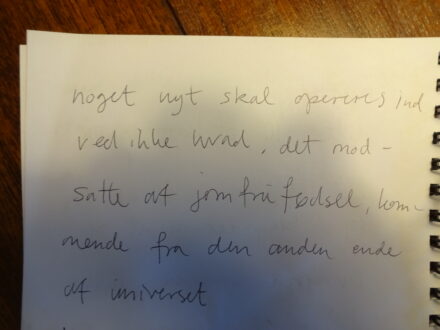 noget nyt skal opereres ind
ved ikke hvad, det mod-
satte af jomfrufødsel, kom-
mende fra den anden ende
af universet